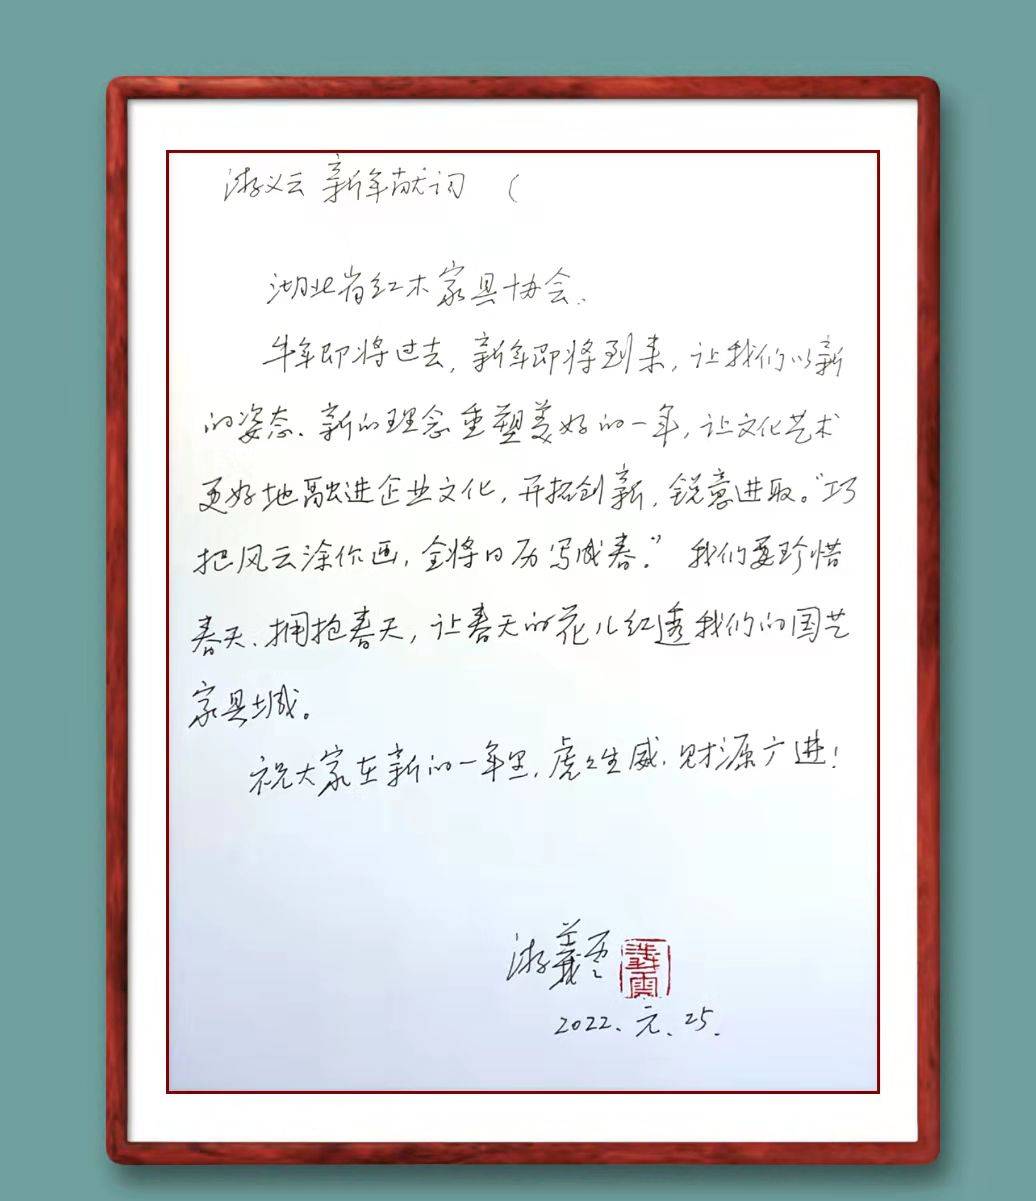 游义云 新年献词 (
湖北省红木家具协会、
牛年即将过去，新年即将到来，让我们以新
的姿态、新的理念重塑美好的一年，让文化艺术
更好地融进企业文化，开拓创新，锐意进取。“巧
把风云涂作画，全将日历写成春。” 我们要珍惜
春天、拥抱春天，让春天的花儿红透我们的国艺
家具城。
祝大家在新的一年里，虎虎生威，财源广进！
游義雲
2022.元.25.